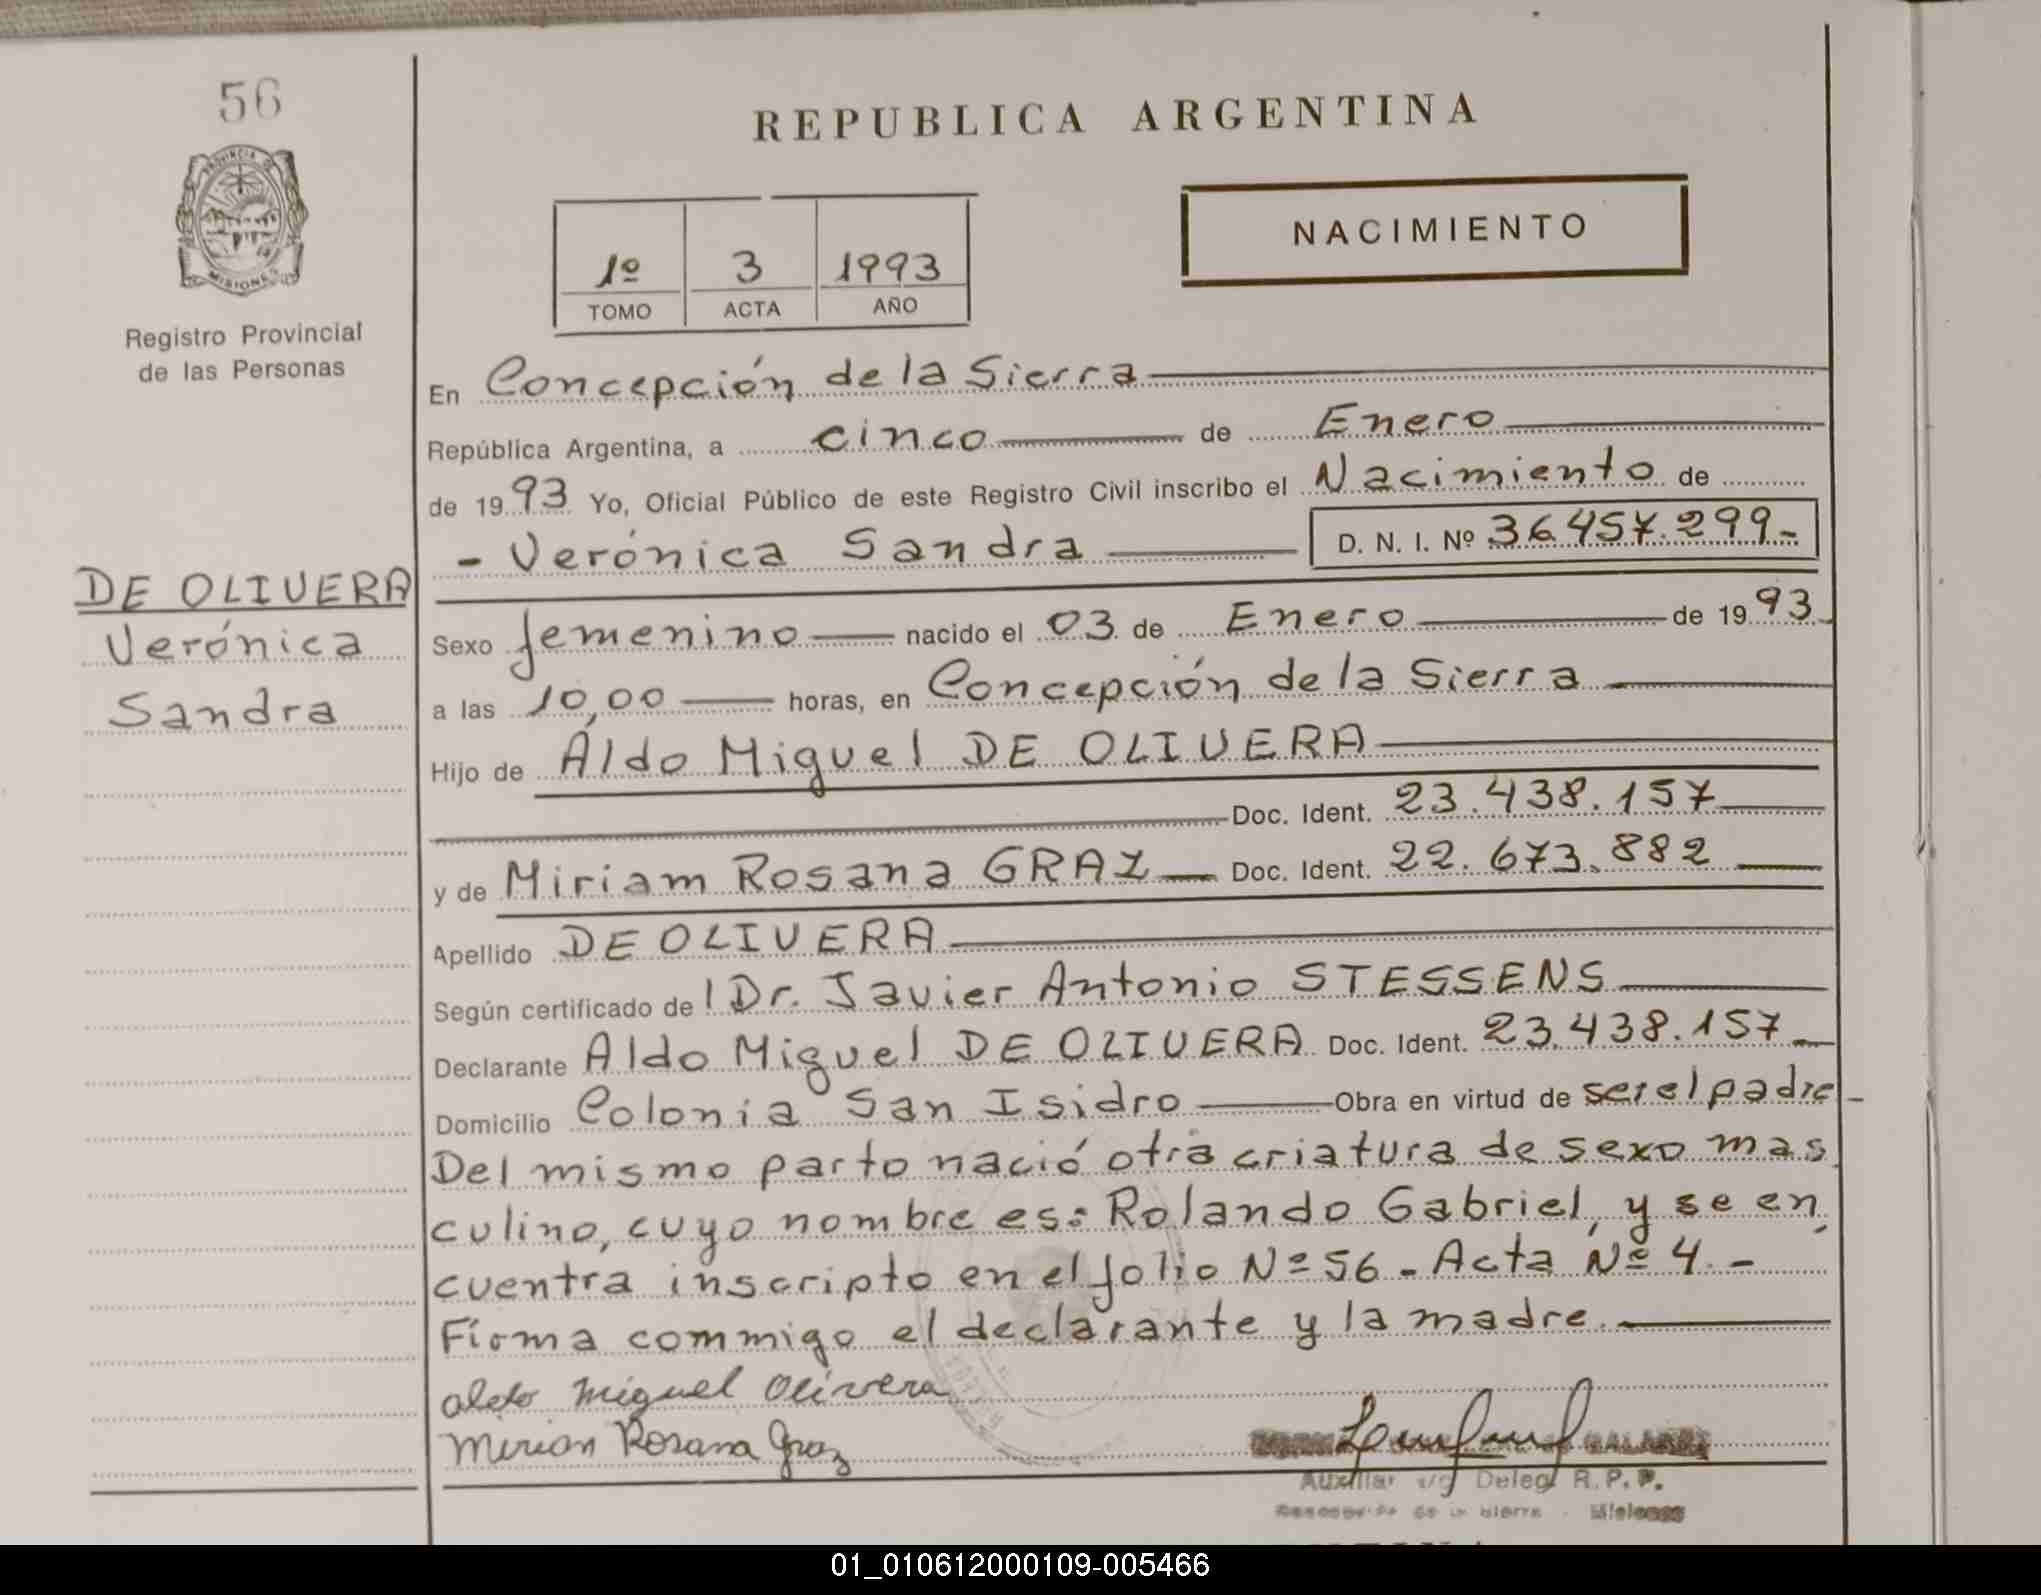 56
PROVINCIA DE
MISIONES
Registro Provincial
de las Personas
DE OLIVERA
Verónica
Sandra
REPUBLICA ARGENTINA
NACIMIENTO
1º 3 1993
TOMO ACTA AÑO
En Concepción de la Sierra
República Argentina, a cinco de Enero
de 1993 Yo, Oficial Público de este Registro Civil inscribo el Nacimiento de
- Verónica Sandra D. N. I. Nº 36.457.299-
Sexo femenino nacido el 03 de Enero de 1993
a las 10,00 horas, en Concepción de la Sierra
Hijo de Aldo Miguel DE OLIVERA
Doc. Ident. 23.438.157
y de Miriam Rosana GRAZ Doc. Ident. 22.673.882
Apellido DE OLIVERA
Según certificado del Dr. Javier Antonio STESSENS
Declarante Aldo Miguel DE OLIVERA Doc. Ident. 23.438.157
Domicilio Colonia San Isidro Obra en virtud de ser el padre -
Del mismo parto nació otra criatura de sexo mas
culino, cuyo nombre es: Rolando Gabriel, y se en
cuentra inscripto en el folio Nº 56 - Acta Nº 4. -
Firma commigo el declarante y la madre.
aldo miguel Olivera
Mirian Rosana Graz
Auxiliar Deleg. R. P. P.
de la Sierra - Misiones
01_010612000109-005466